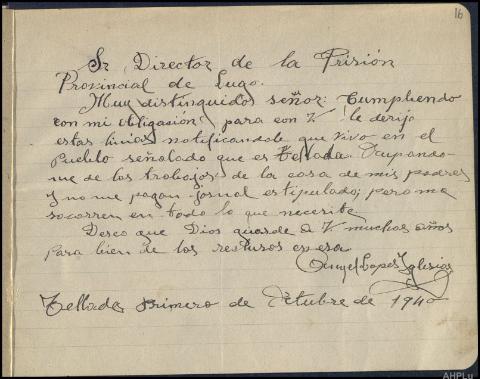 16
Sr Director de la Prisión
Provincial de Lugo.
Muy distinguidos señor: Cumpliendo
con mi obligasión para con V le derijo
estas linias notificandole que vivo en el
Pueblo señalado que es Tellada. Ocupando-
me de los trobajos de la casa de mis padres
y no me pagan jornal estipulado; pero me
socorren en todo lo que necesite
Deseo que Dios guarde a V muchos años
para bien de los reclusos en esa
Angel Lopes Yglesias
Tellada primero de Octubre de 1940
AHPLu